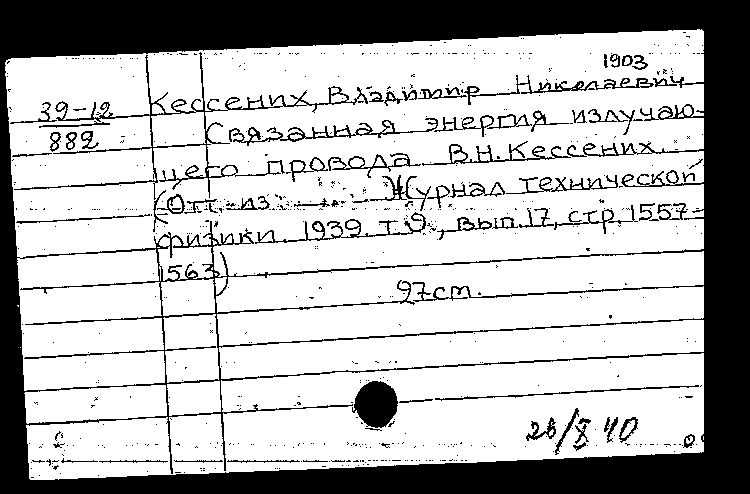 1903
39-12
882
Кессених, Владимир Николаевич
Связанная энергия излучаю-
щего провода В.Н. Кессених.
(Отт. из Журнал технической
физики. 1939. т. 9, вып. 17, стр. 1557-
1563)
27 cm.
26/X 40